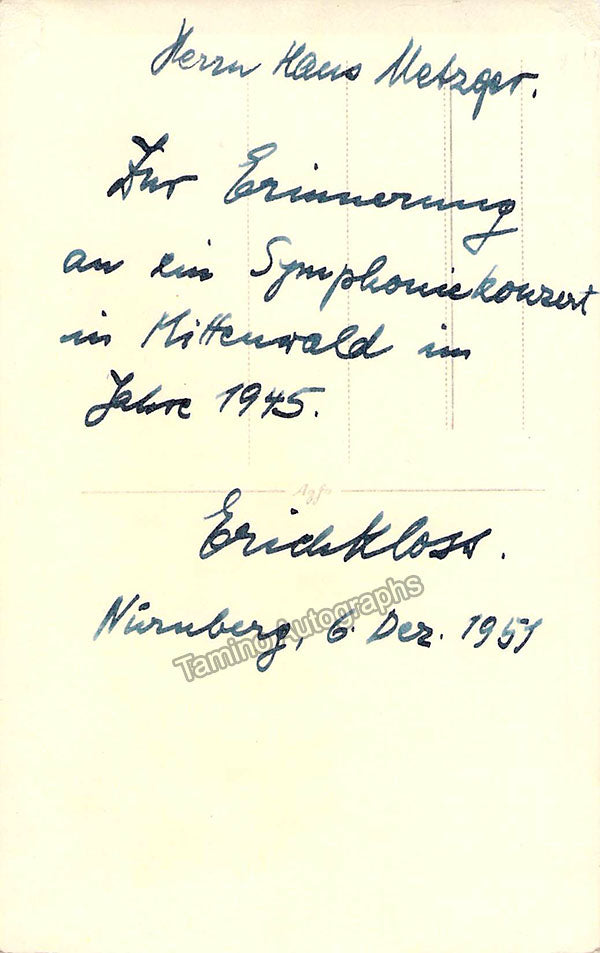 Herrn Hans Metzger.
Zur Erinnerung
an ein Symphoniekonzert
in Mittenwald im
Jahre 1945.
Agfa
Erich Kloss.
Nürnberg, 6. Dez. 1951
Tamino Autographs